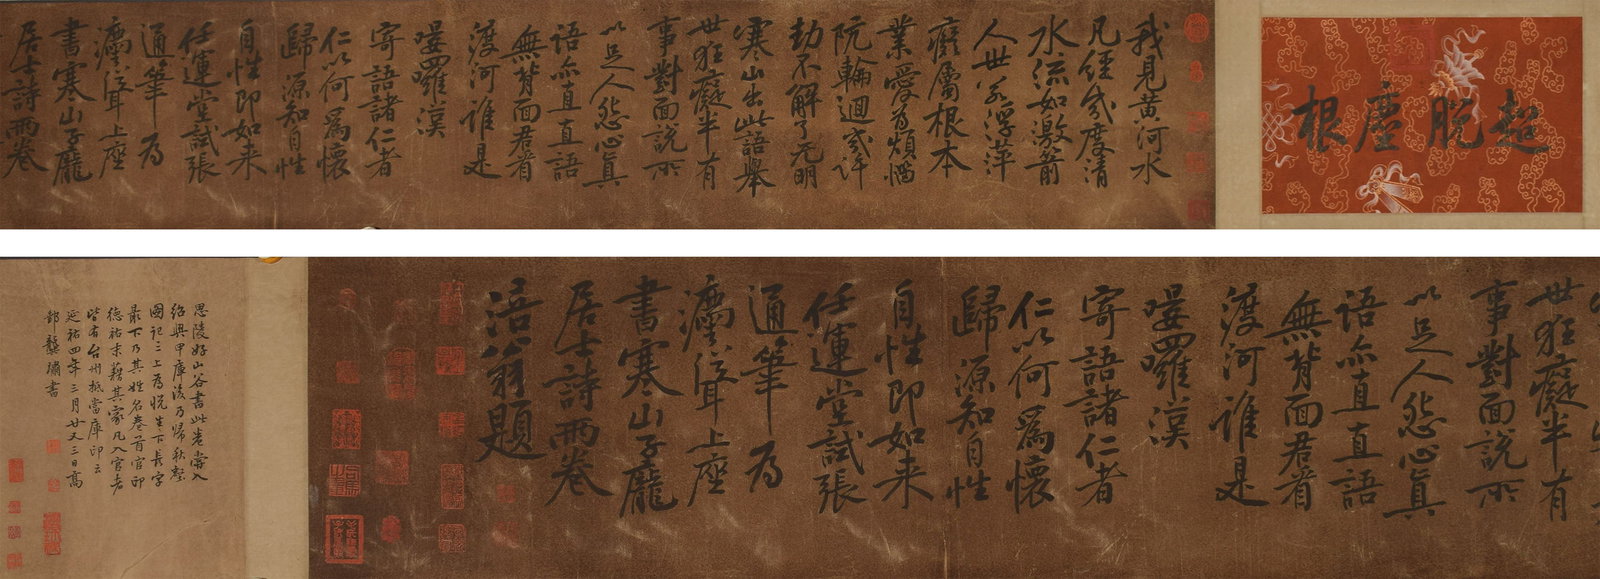 超脫塵根
我見黄河水
凡經幾度清
水流如激箭
人世若浮萍
癡屬根本
業愛為煩惱
阬輪迴幾許
劫不解了无明
寒山出此語舉
世狂癡半有
事對面說所
以足人怨心真
語亦直直語
無背面君看
渡河誰是
嘍囉漢
寄語諸仁者
仁以何爲懷
歸源知自性
自性即如来
任運堂試張
通筆為
灋聳上座
書寒山子龐
居士詩兩卷
世狂癡半有
事對面說所
以足人怨心真
語亦直直語
無背面君看
渡河誰是
嘍囉漢
寄語諸仁者
仁以何爲懷
歸源知自性
自性即如来
任運堂試張
通筆為
灋聳上座
書寒山子龐
居士詩兩卷
涪翁題
思陵好山谷書此卷嘗入
紹興甲庫後乃歸秋壑
圖記三上為悅生下長字
最下乃其姓名卷首官印
德祐末籍其家凡入官者
皆有台州抵當庫印云
延祐四年三月廿又三日高
郵龔璛書